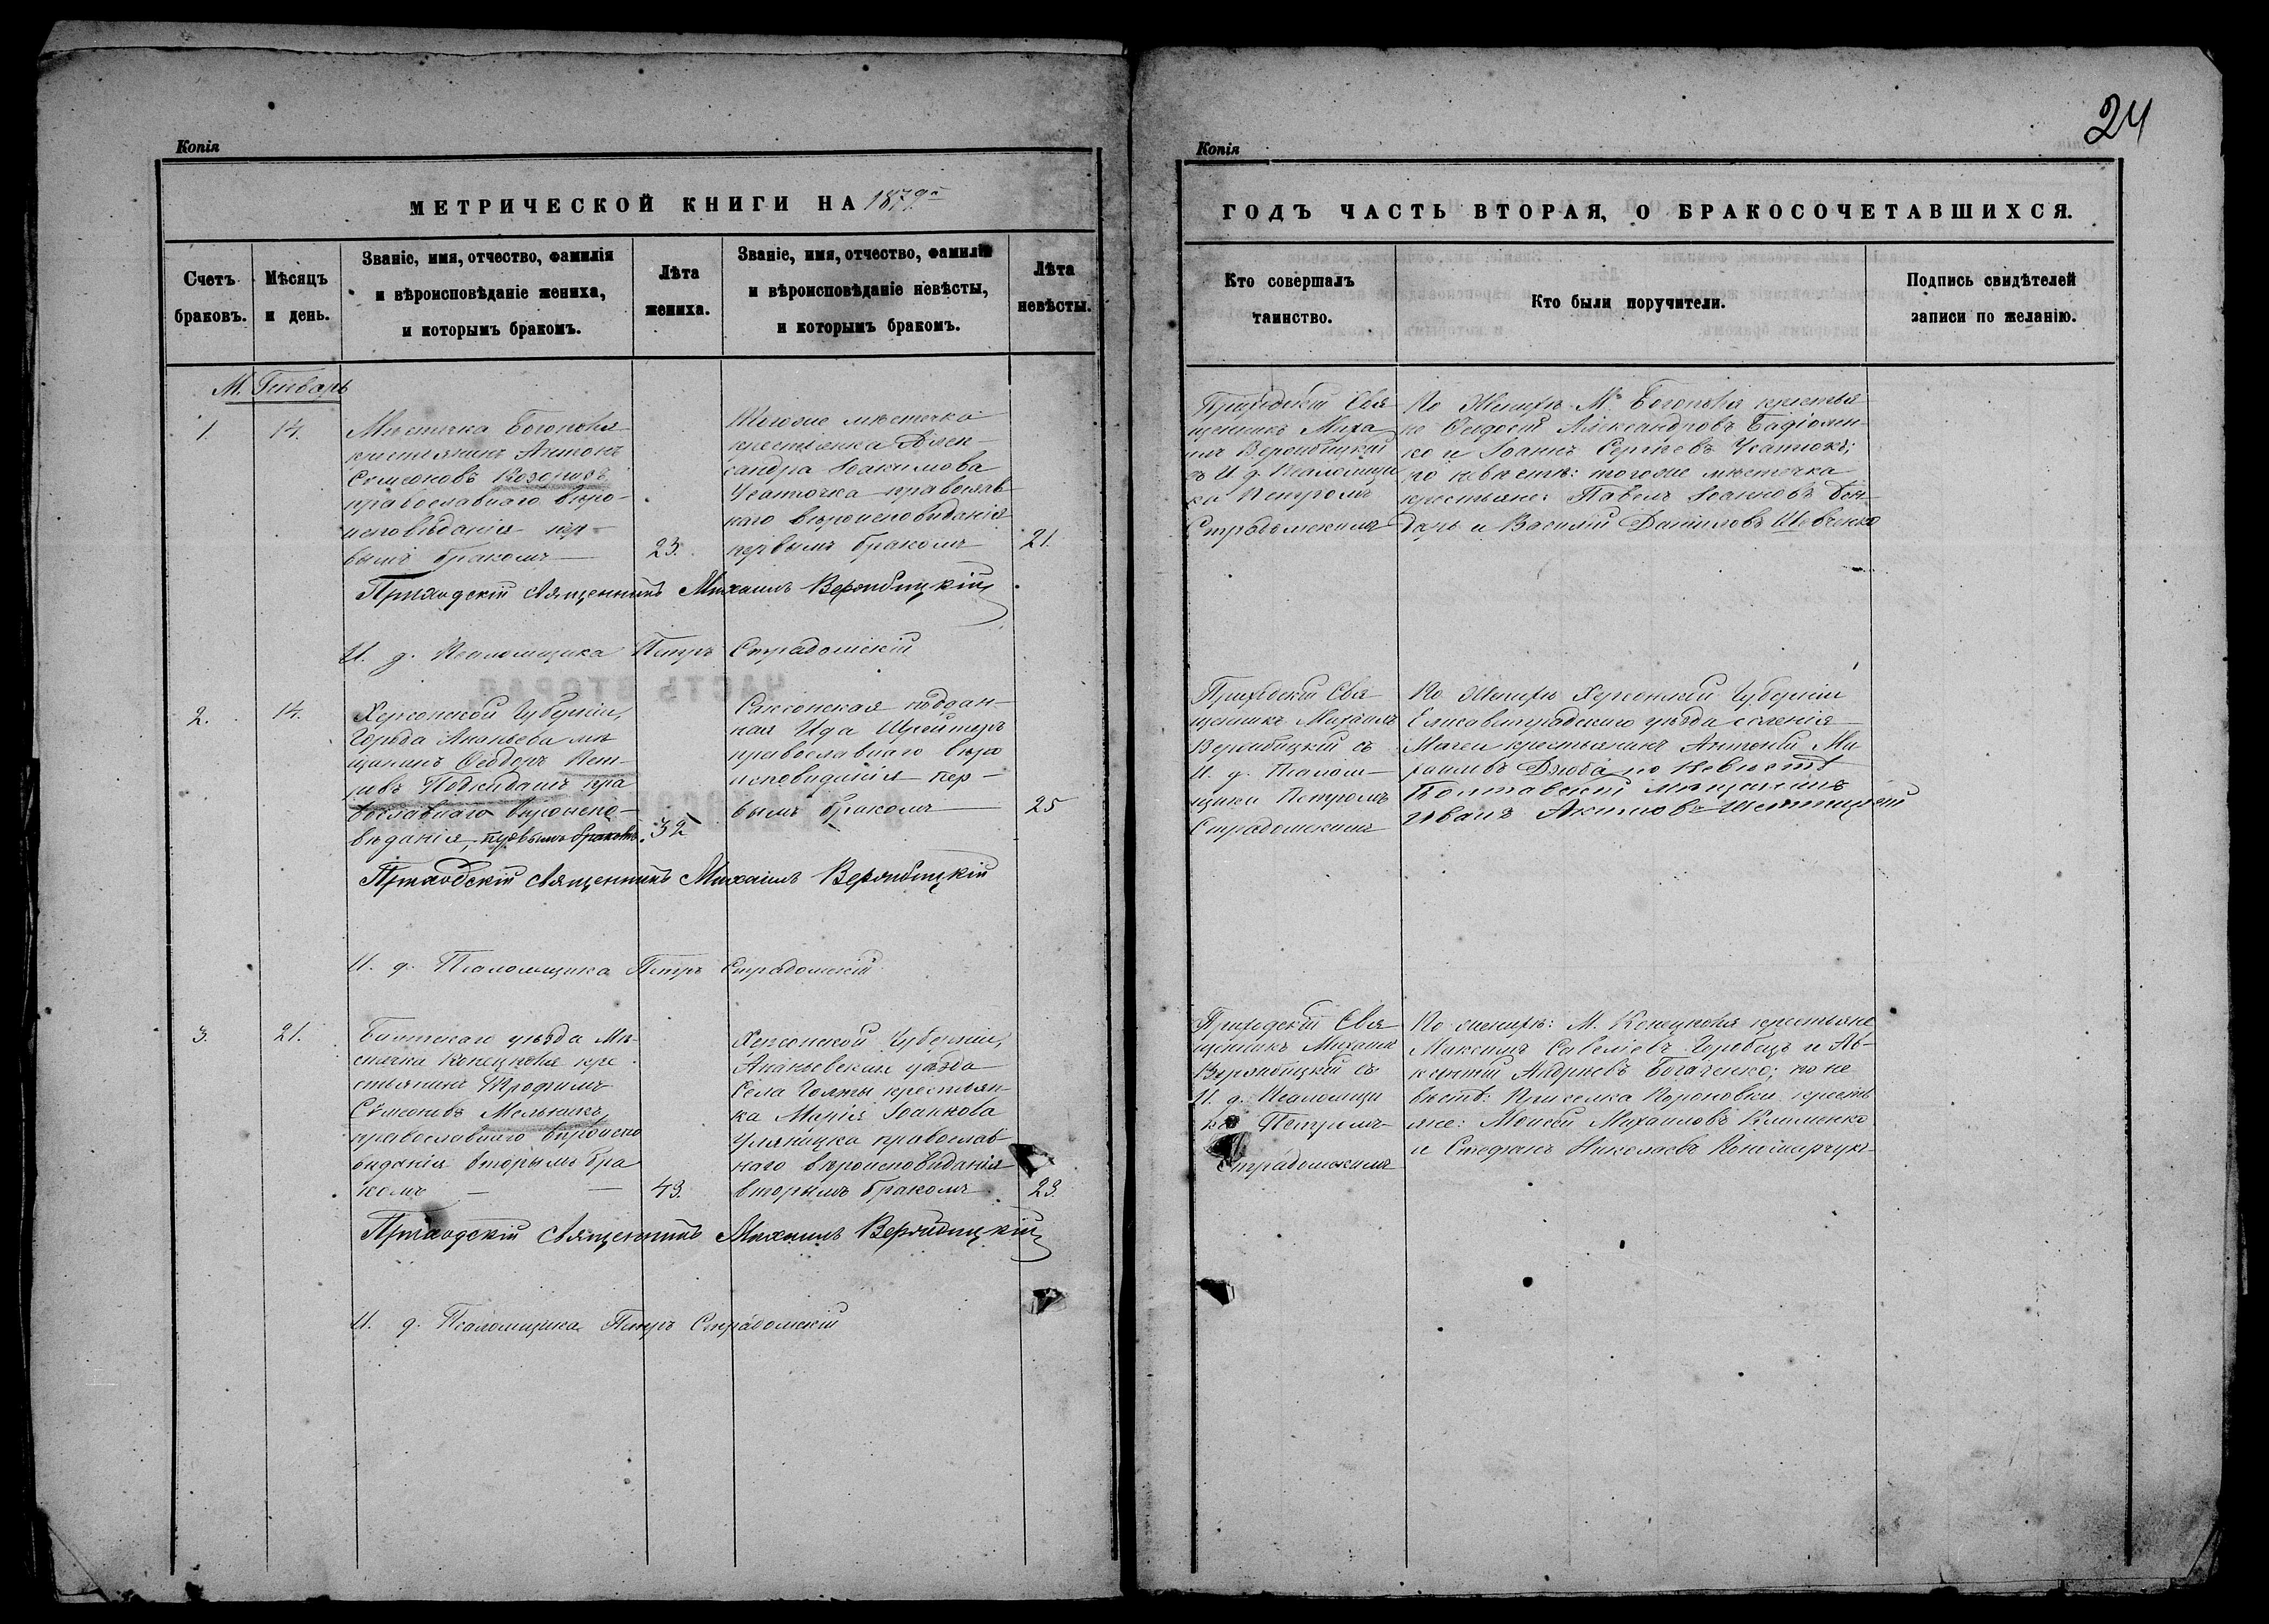 24
Копія
МЕТРИЧЕСКОЙ КНИГИ НА 1879й
Счетъ браковъ.
Мѣсяцъ и день.
Званіе, имя, отчество, фамилія
и вѣроисповѣданіе жениха,
и которымъ бракомъ.
Лѣта жениха.
Званіе, имя, отчество, фамилія
и вѣроисповѣданіе невѣсты,
и которымъ бракомъ.
Лѣта невѣсты.
М. Генварь
1.
14.
Мѣстечка Богополя
крестьянинъ Антонъ
Семеновъ
православнаго вѣро-
исповѣданія пер-
вымъ бракомъ
23.
Тогоже мѣстечка
крестьянка Алек-
сандра Іоакимова
Усаточка православ
наго вѣроисповѣданія
первымъ бракомъ
21.
Приходскій священникъ Михаилъ Вержбицкій
И. д. Псаломщика Петръ Страдомскій
2.
14.
Херсонской Губерніи,
Города Ананьева мѣ
щанинъ Феодоръ Пет-
ровъ Подкидашъ пра
вославнаго вѣроиспо-
вѣданія, первымъ бракомъ.
32
Саксонская поддан-
ная Ида
православнаго вѣро
исповѣданія пер-
вымъ бракомъ
25
Приходскій священникъ Михаилъ Вержбицкій
И. д. Псаломщика Петръ Страдомскій
3.
21.
Балтскаго уѣзда Мѣ-
стечка Конецполя кре
стьянинъ Трофимъ
Семеновъ Мельникъ
православнаго вѣроиспо
вѣданія вторымъ бра
комъ
43.
Херсонской Губерніи,
Ананьевскаго уѣзда
Села Голты крестьян-
ка Марія Іоаннова
Уляницка православ-
наго вѣроисповѣданія
вторымъ бракомъ
23.
Приходскій священникъ Михаилъ Вержбицкій
И. д. Псаломщика Петръ Страдомскій
Копія
ГОДЪ ЧАСТЬ ВТОРАЯ, О БРАКОСОЧЕТАВШИХСЯ.
Кто совершалъ таинство.
Кто были поручители.
Подпись свидѣтелей
записи по желанію.
Приходскій Свя
щенникъ Миха
илъ Вержбицкій
съ И. д. Псаломщи
ка Петромъ
Страдомскимъ
По Женихѣ М. Богополя крестья
не Феодосій Александровъ
ко и Іоаннъ Сергіевъ Усатюкъ;
по невѣстѣ: тогоже мѣстечка
крестьяне: Павелъ Іоанновъ Бон-
дарь и Василій Даніиловъ Шевченко
Приходскій Свя
щенникъ Михаилъ
Вержбицкій съ
И. д. Псалом-
щика Петромъ
Страдомскимъ
По Женихѣ Херсонской Губерніи
Елисаветградскаго уѣзда селенія
крестьянинъ Антоній
Дзюба, по Невѣстѣ
Полтавскій мѣщанинъ
Иванъ Акимовъ
Приходскій Свя
щенникъ Михаилъ
Вержбицкій съ
И. д. Псаломщи
ка Петромъ
Страдомскимъ
По женихѣ: М. Конецполя крестьяне
Максимъ Савеліевъ Горобецъ и Ав-
ксентій Андреевъ Богаченко; по не
вѣстѣ: крестья
яне: Моисей Михаиловъ Клименко
и Стефанъ Николаевъ